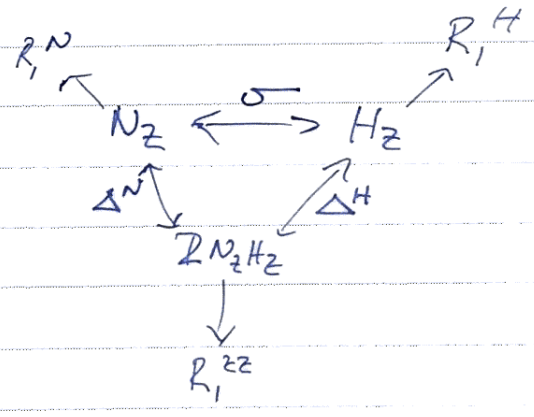 R₁ᴺ R₁ᴴ
σ
N_Z H_Z
Δᴺ Δᴴ
2N_ZH_Z
R₁ᶻᶻ